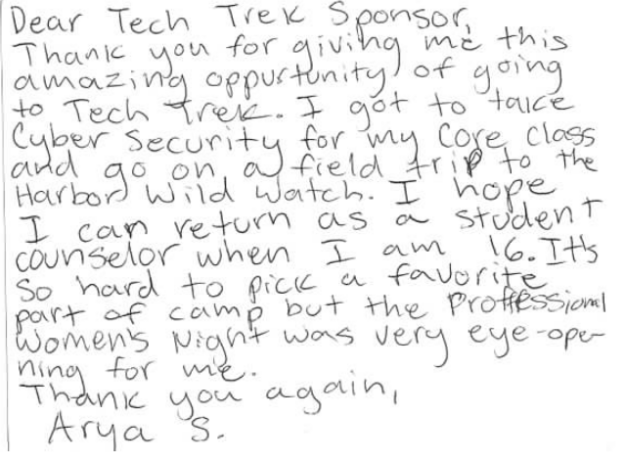 Dear Tech Trek Sponsor,
Thank you for giving me this
amazing oppurtunity of going
to Tech Trek. I got to take
Cyber Security for my Core Class
and go on a field trip to the
Harbor Wild Watch. I hope
I can return as a student
counselor when I am 16. It's
so hard to pick a favorite
part of camp but the Proffessional
Women's Night was very eye-ope-
ning for me.
Thank you again,
Arya S.